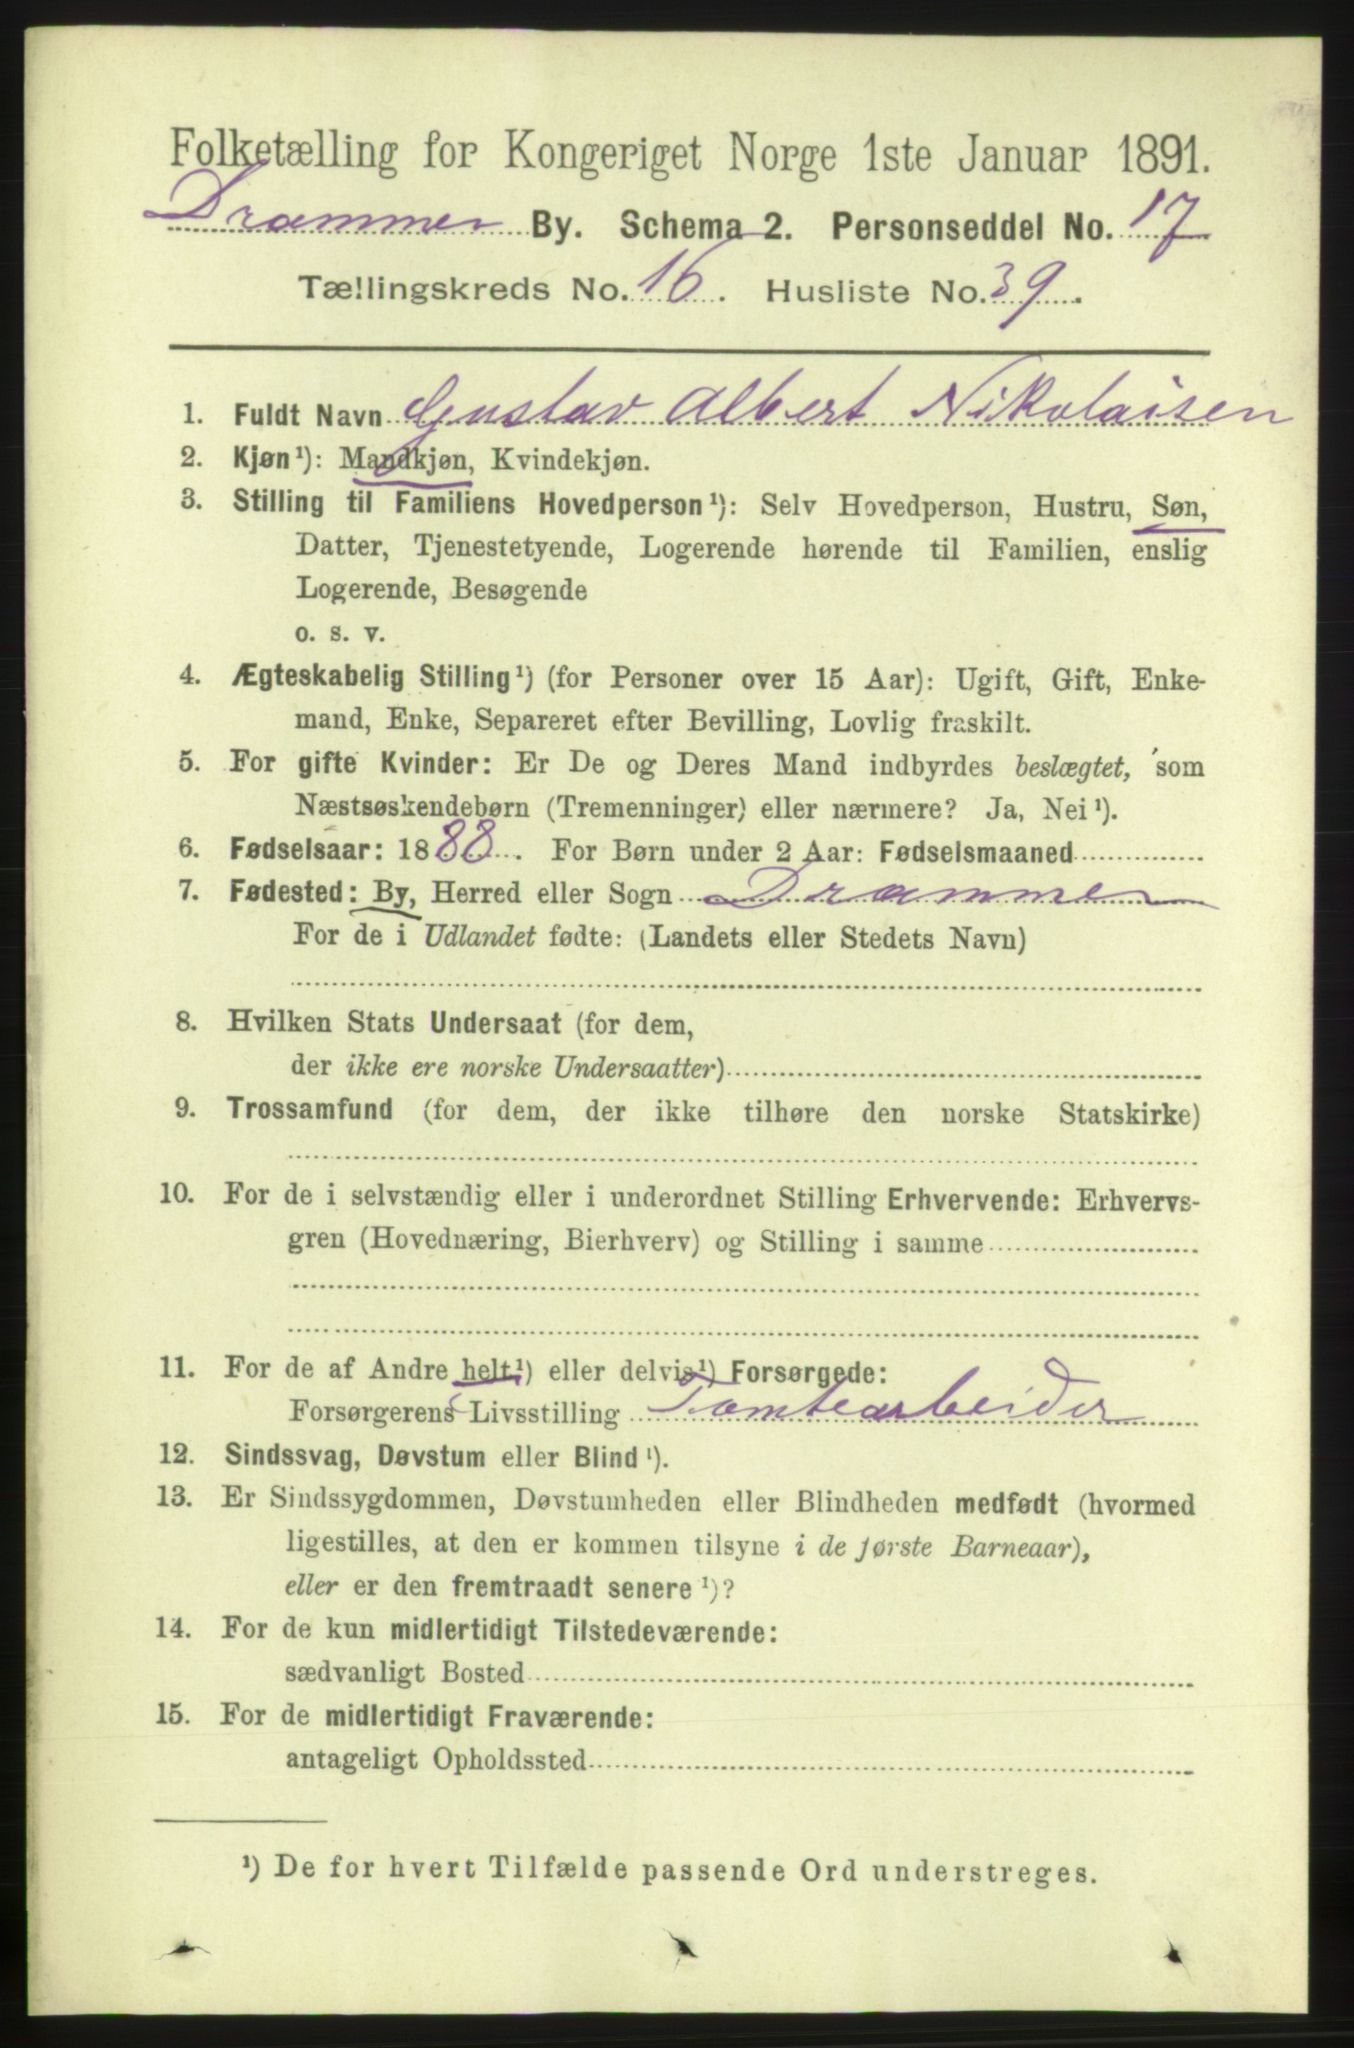 Folketælling for Kongeriget Norge 1ste Januar 1891.
Drammen By. Schema 2. Personseddel No. 17
Tællingskreds No. 16. Husliste No. 39.
1. Fuldt Navn Gustav Albert Nikolaisen
2. Kjøn¹): Mandkjøn, Kvindekjøn.
3. Stilling til Familiens Hovedperson¹): Selv Hovedperson, Hustru, Søn,
Datter, Tjenestetyende, Logerende hørende til Familien, enslig
Logerende, Besøgende
o. s. v.
4. Ægteskabelig Stilling¹) (for Personer over 15 Aar): Ugift, Gift, Enke-
mand, Enke, Separeret efter Bevilling, Lovlig fraskilt.
5. For gifte Kvinder: Er De og Deres Mand indbyrdes beslægtet, som
Næstsøskendebørn (Tremenninger) eller nærmere? Ja, Nei¹).
6. Fødselsaar: 1888. For Børn under 2 Aar: Fødselsmaaned
7. Fødested: By, Herred eller Sogn Drammen
For de i Udlandet fødte: (Landets eller Stedets Navn)
8. Hvilken Stats Undersaat (for dem,
der ikke ere norske Undersaatter)
9. Trossamfund (for dem, der ikke tilhøre den norske Statskirke)
10. For de i selvstændig eller i underordnet Stilling Erhvervende: Erhvervs-
gren (Hovednæring, Bierhverv) og Stilling i samme
11. For de af Andre helt¹) eller delvis¹) Forsørgede:
Forsørgerens Livsstilling Tomtearbeider
12. Sindssvag, Døvstum eller Blind¹).
13. Er Sindssygdommen, Døvstumheden eller Blindheden medfødt (hvormed
ligestilles, at den er kommen tilsyne i de første Barneaar),
eller er den fremtraadt senere¹)?
14. For de kun midlertidigt Tilstedeværende:
sædvanligt Bosted
15. For de midlertidigt Fraværende:
antageligt Opholdssted
¹) De for hvert Tilfælde passende Ord understreges.